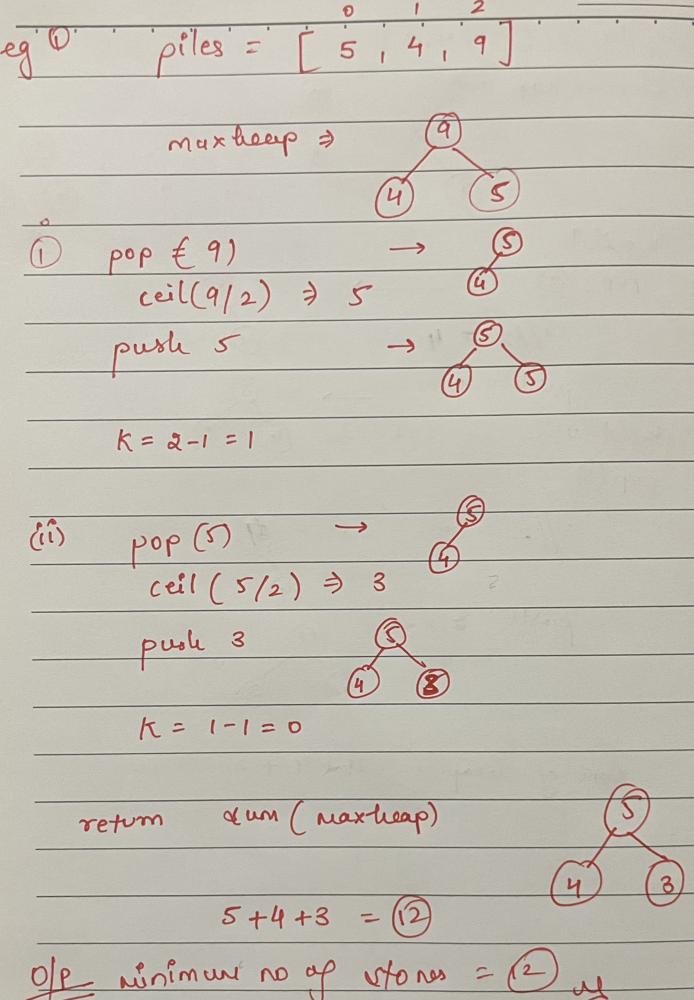 0 1 2
eg ① piles = [ 5 , 4 , 9 ]
maxheap ⇒ 9
4 5
① pop (9) → 5
ceil(9/2) ⇒ 5 4
push 5 → 5
4 5
K = 2-1 = 1
(ii) pop (5) → 5
4
ceil ( 5/2 ) ⇒ 3
push 3 5
4 3
K = 1-1 = 0
return sum ( maxheap) 5
4 3
5+4+3 = 12
O/p minimum no of stones = 12